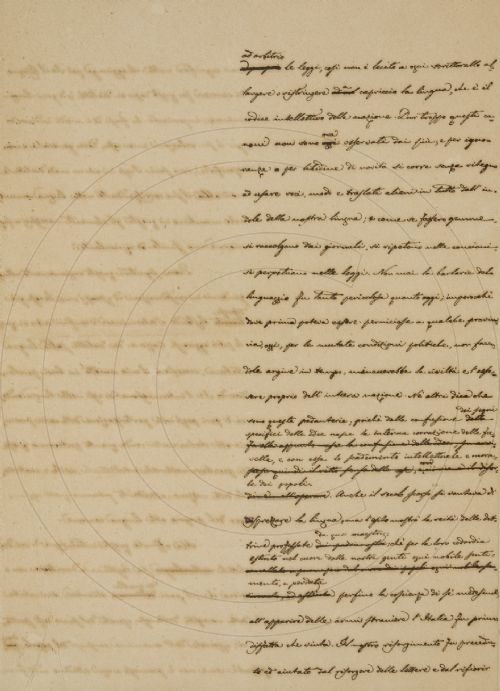 ad arbitrio
le leggi, così non è lecito a ogni scrittorello al
largare o ristringere a capriccio la lingua, che è il
codice intellettivo della nazione. Pur troppo questi ca
noni non sono ora osservati dai più, e per igno
ranza o per libidine di novità si corre senza ritegno
ad usare voci, modi e traslati alieni in tutto dall' in
dole della nostra lingua; e come se fossero gemme
si raccolgono dai giornali, si ripetono nelle concioni
si perpetuano nelle leggi. Non mai la barbarie del
linguaggio fu tanto pericolosa quanto oggi; imperocchè
dove prima poteva essere perniciosa a qualche provin
cia, oggi, per le mutate condizioni politiche, non facen
dole argine in tempo, menomerebbe la civiltà e l'esse
re proprio dell' intera nazione. Nè altri dica che
sono queste pedanterie; poichè dalla confusione dei segni
delle idee nasce la interna corruzione della fa
vella, e con essa lo pervertimento intellettuale e mora
le dei popoli.
Anche il secolo scorso si vantava di
disprezzare la lingua, ma l'esito mostrò la verità delle dot
trine professate da quei maestri; chè per la loro
estinto nel cuore delle nostre genti ogni nobile senti
mento, e perduta
perfino la coscienza di sè medesime
all'apparire delle armi straniere l'Italia fu prima
disfatta che vinta. Il nostro risorgimento fu precedu
to ed aiutato dal rifiorire delle lettere e dal rifiorir